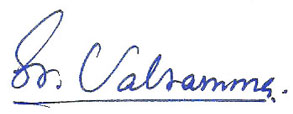 Sr. Valsamma.